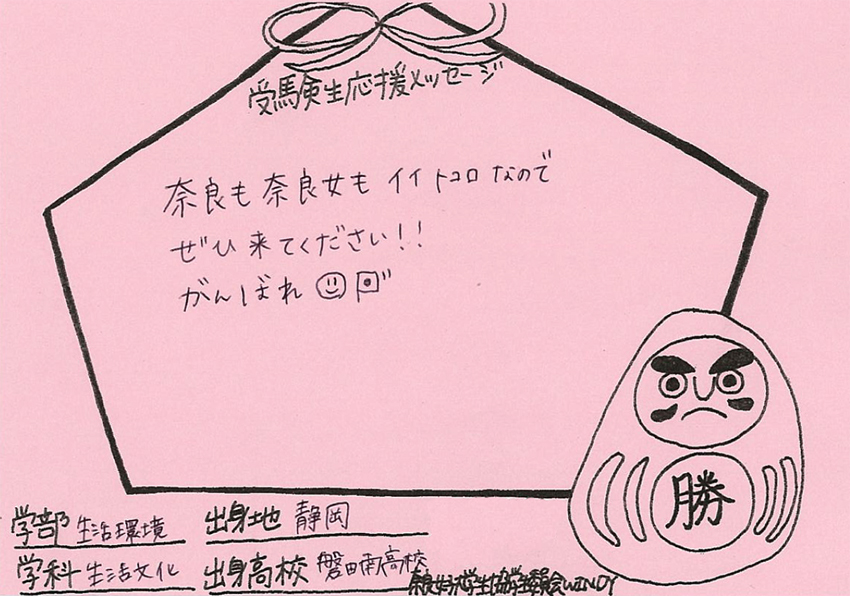 受験生応援メッセージ
奈良も奈良女も イイトコロ なので
ぜひ 来てください!!
がんばれ
勝
学部 生活環境 出身地 静岡
学科 生活文化 出身高校 磐田南高校
奈良女子大学生協学生委員会WINDY